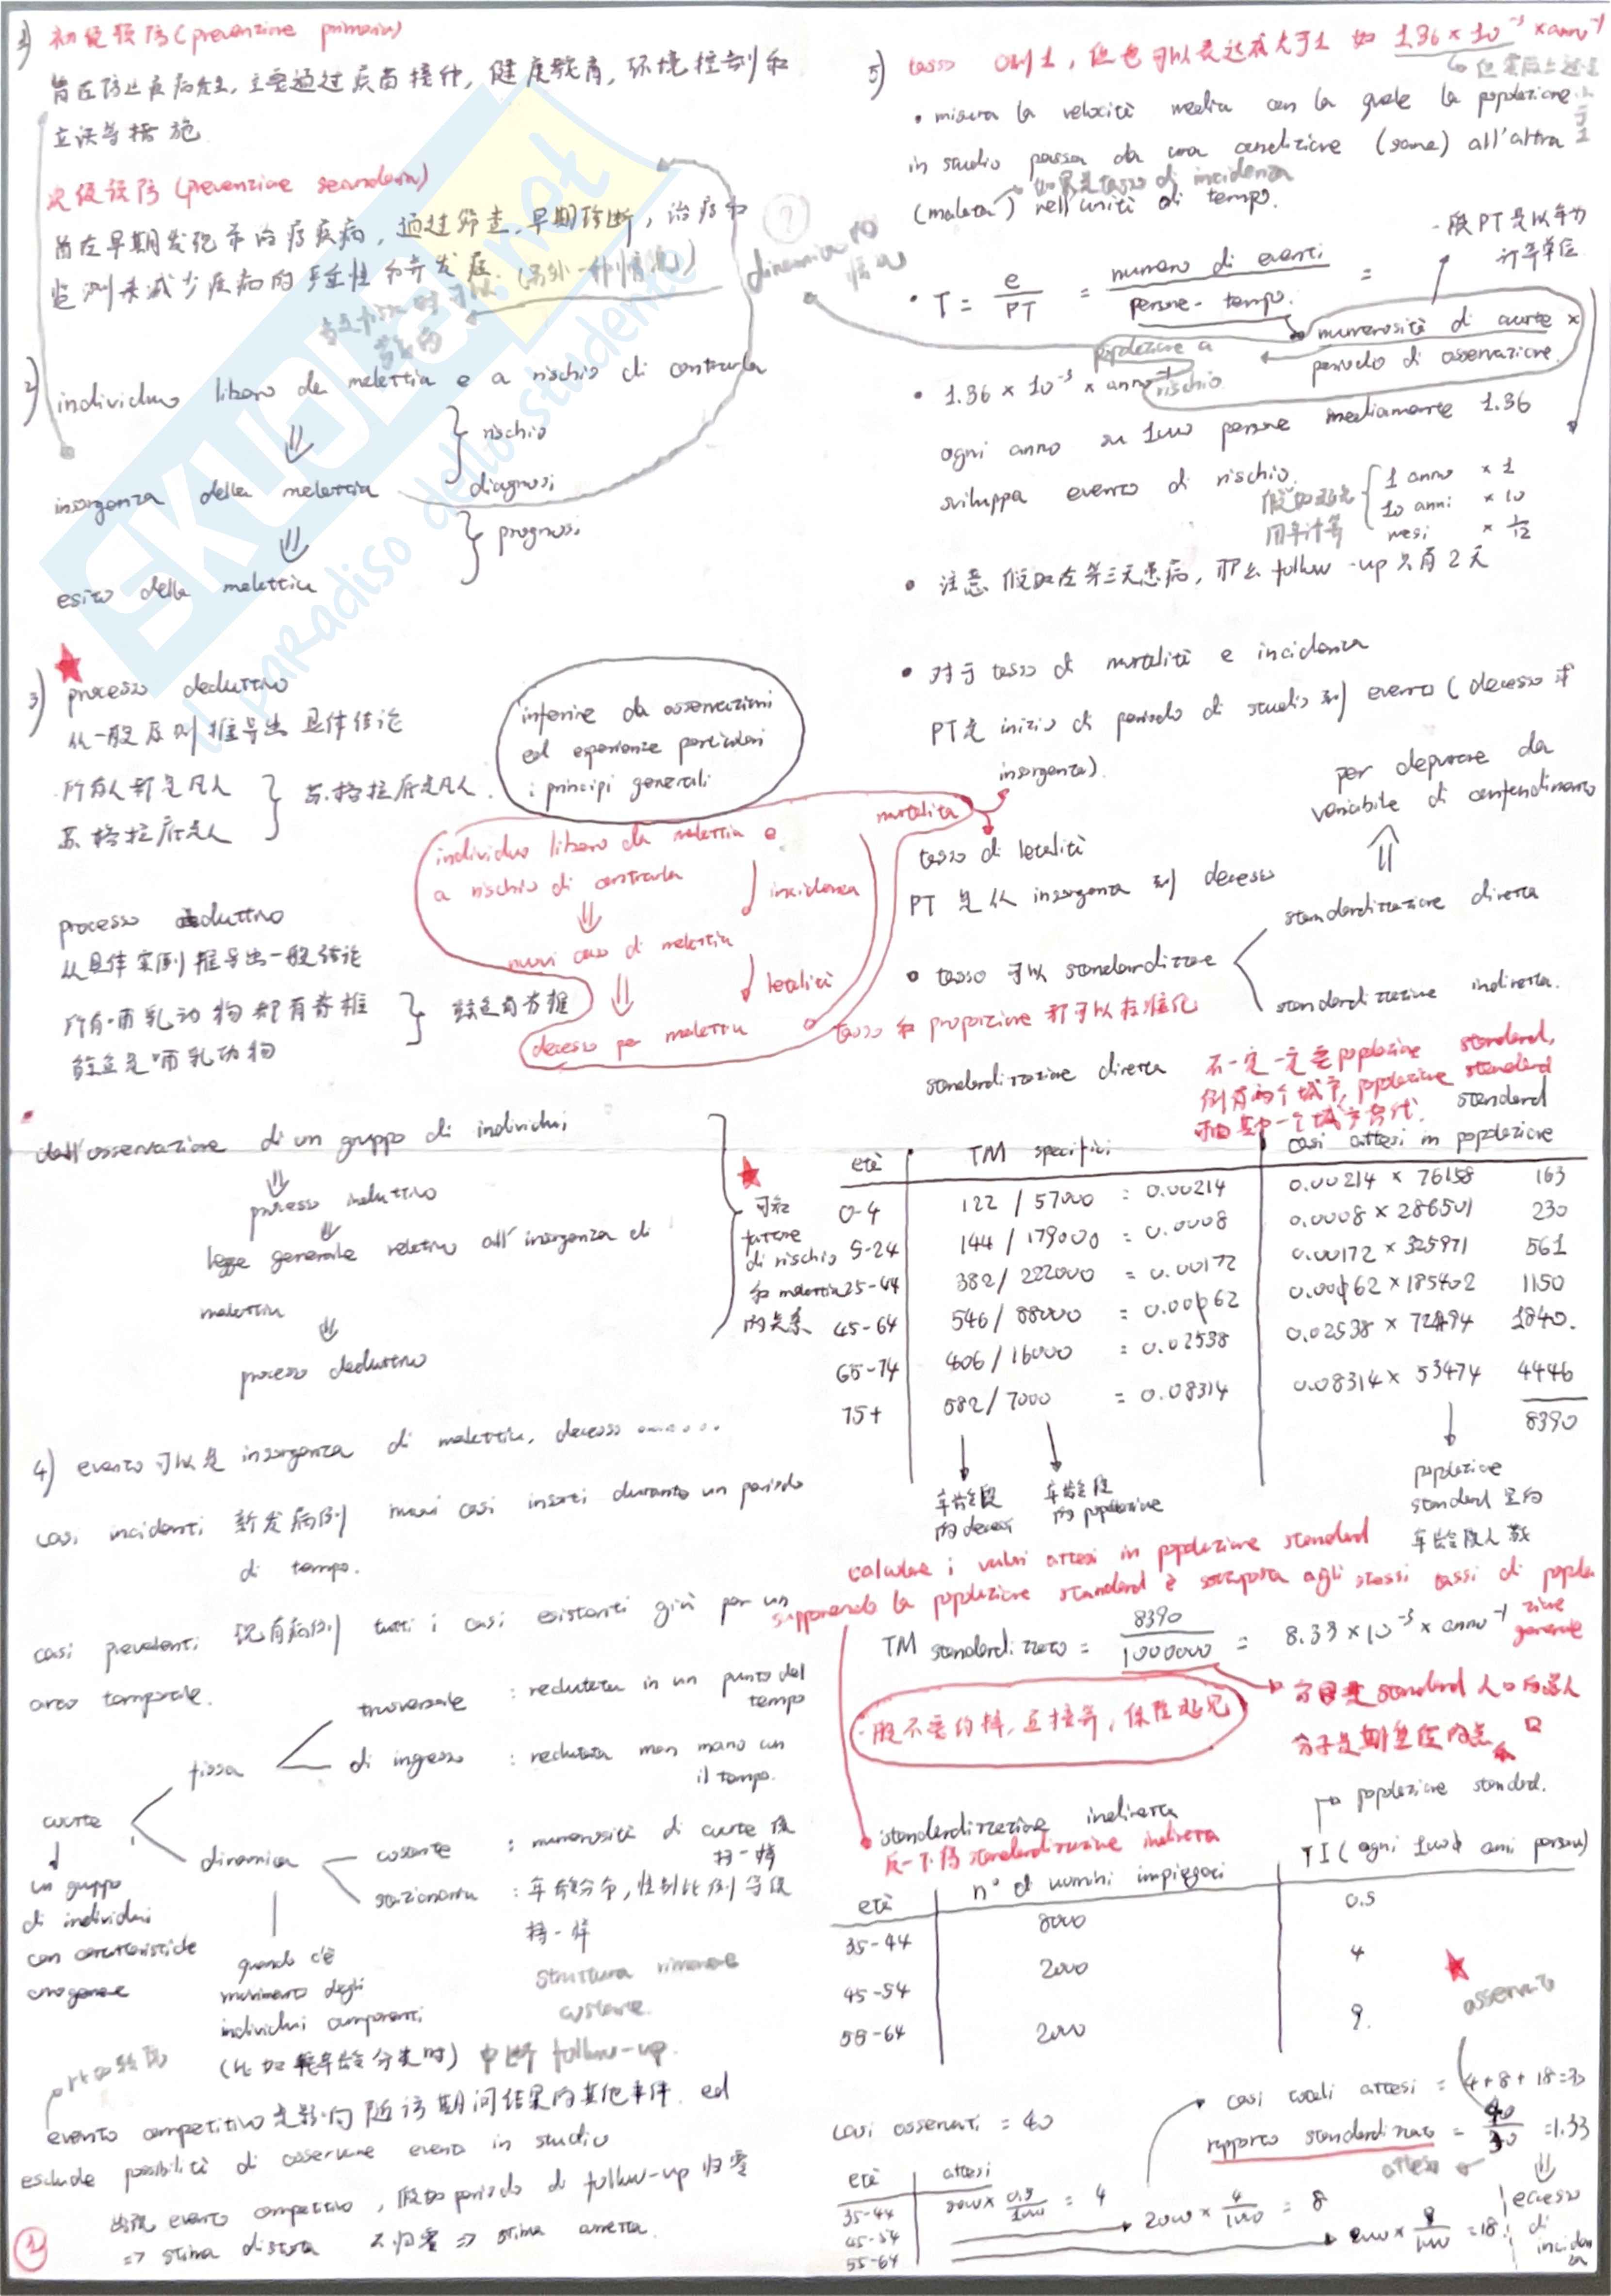 1) 初级预防 (prevenzione primaria)
旨在防止疾病发生, 主要通过疫苗接种, 健康教育, 环境控制和
立法等措施.
次级预防 (prevenzione secondaria)
旨在早期发现和治疗疾病, 通过筛查, 早期诊断, 治疗和
监测来减少疾病的严重性和并发症. (另外一种情况)
2) individuo libero da malattia e a rischio di contrarla
⇓
} rischio
insorgenza della malattia
diagnosi
⇓
} prognosi
esito della malattia
SKUOLA.net
il paradiso dello studente
3) processo deduttivo
从一般原则推导出具体结论
所有人都是凡人
苏格拉底是人
} 苏格拉底是凡人.
inferire da osservazioni
ed esperienze particolari
i principi generali
processo deduttivo
从具体实例推导出一般结论
所有哺乳动物都有脊椎
鲸鱼是哺乳动物
} 鲸鱼有脊椎
individuo libero da malattia e
a rischio di contrarla
⇓
incidenza
nuovi caso di malattia
⇓
letalità
decesso per malattia
mortalità
dall'osservazione di un gruppo di individui
⇓
processo induttivo
⇓
legge generale relativa all'insorgenza di
malattia
⇓
processo deduttivo
可和
fattore
di rischio
和 malattia
的关系
4) evento 可以是 insorgenza di malattia, decesso ......
casi incidenti 新发病例 nuovi casi insorti durante un periodo
di tempo.
casi prevalenti 现有病例 tutti i casi esistenti già per un
arco temporale.
coorte
un gruppo
di individui
con caratteristiche
omogenee
fissa
trasversale : reclutata in un punto del
tempo
di ingresso : reclutata man mano con
il tempo.
dinamica
costante : numerosità di coorte 保
持一样
stazionaria : 年龄分布, 性别比例 等保
持一样
struttura rimanere
costante.
quando c'è
movimento degli
individui componenti
(比如 按年龄分类时) 中断 follow-up.
evento competitivo 是影响随访期间结果的其他事件. ed
esclude possibilità di osservare evento in studio
出现 evento competitivo, 假如 periodo di follow-up 归零
=> stima distorta 不归零 => stima corretta.
1
5) tasso 0到1, 但也可以表达成大于1 如 1.36 × 10⁻³ × anno⁻¹
• misura la velocità media con la quale la popolazione
in studio passa da una condizione (sane) all'altra
如果是tasso di incidenza
(malata) nell'unità di tempo.
dinamica
一般PT是以年为
计算单位
• T = e / PT = numero di eventi / persone-tempo =
numerosità di coorte ×
periodo di osservazione
popolazione a
rischio
• 1.36 × 10⁻³ × anno⁻¹
ogni anno su 1000 persone mediamente 1.36
sviluppa evento di rischio.
用年计算
1 anno × 1
10 anni × 10
mesi × 1/12
• 注意 假如在第三天患病, 那么 follow-up 只有2天
• 对于 tasso di mortalità e incidenza
PT是 inizio di periodo di studio 到 evento (decesso 或
insorgenza).
tasso di letalità
PT 是从 insorgenza 到 decesso
• tasso 可以 standardizzare
standardizzazione diretta
per depurare da
variabile di confondimento
standardizzazione indiretta.
tasso 和 proporzione 都可以标准化
standardizzazione diretta
不一定一定要popolazione standard,
例有两个城市, popolazione standard
可由其中一个城市替代.
standard
età TM specifici casi attesi in popolazione
0-4 122 / 57000 = 0.00214 0.00214 × 76158 163
5-24 144 / 179000 = 0.0008 0.0008 × 286501 230
25-44 382 / 222000 = 0.00172 0.00172 × 325971 561
45-64 546 / 88000 = 0.0062 0.0062 × 185402 1150
65-74 406 / 16000 = 0.02538 0.02538 × 72494 1840.
75+ 582 / 7000 = 0.08314 0.08314 × 53474 4446
8390
年龄段
的 decessi
年龄段
的 popolazione
popolazione
standard 里的
年龄段人数
calcolare i valori attesi in popolazione standard
supponendo la popolazione standard è sottoposta agli stessi tassi di popola
zione
generale
TM standardizzato = 8390 / 1000000 = 8.33 × 10⁻³ × anno⁻¹
一般不要约掉, 直接算, 保险起见
分母是 standard 人口的总人
口
分子是期望值的总
standardizzazione indiretta
反一下的 standardizzazione indiretta
popolazione standard.
età n° di uomini impiegati TI (ogni 1000 anni persona)
35-44 8000 0.5
45-54 2000 4
55-64 2000 9.
casi osservati = 40
casi totali attesi = 4+8+18=30
osservato
rapporto standardizzato = 40 / 30 = 1.33
attesi
⇓
eccesso
di
inciden
za
età attesi
35-44 8000 × 0.5/1000 = 4
45-54 2000 × 4/1000 = 8
55-64 2000 × 9/1000 = 18